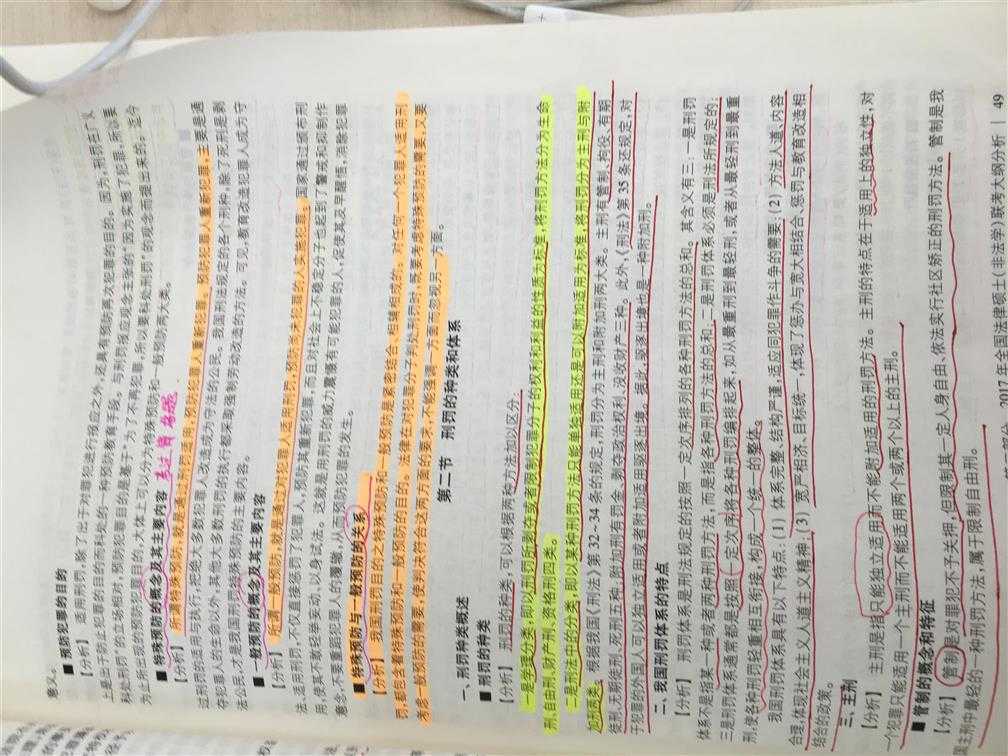 意义。
■ 预防犯罪的目的
【分析】 适用刑罚,除了出于对罪犯进行报应之外,还具有预防再次犯罪的目的。因为,刑罚在广义
上是出于防止犯罪的目的而科处的一种预防教育手段。与刑罚报应观念主张的“因为实施了犯罪,所以要
科处刑罚”的立场相对,预防犯罪目的是基于“为了不再犯罪,所以要科处刑罚”的观念而提出来的。迄今
为止所出现的预防犯罪目的,大体上可以分为特殊预防和一般预防两大类。
■ 特殊预防的概念及其主要内容
【分析】 所谓特殊预防,就是通过刑罚适用,预防犯罪人重新犯罪。预防犯罪人重新犯罪,主要是通
过刑罚的适用与执行,把绝大多数犯罪人改造成为守法的公民。我国刑法规定的各个刑种,除了死刑是剥
夺犯罪人的生命以外,其他大多数刑罚的执行都采取强制劳动改造的方法。可见,教育改造犯罪人成为守
法公民,才是我国刑罚特殊预防的主要内容。
■ 一般预防的概念及其主要内容
【分析】 所谓一般预防,就是通过对犯罪人适用刑罚,预防尚未犯罪的人实施犯罪。国家通过颁布刑
法、适用刑罚,不仅直接惩罚了犯罪人,预防其重新犯罪,而且对社会上不稳定分子也起到了警戒和抑制作
用,使其不敢轻举妄动、以身试法。这就是用刑罚的威力震慑有可能犯罪的人,促使其及早醒悟,消除犯罪
意念,不重蹈犯罪人的覆辙,从而预防犯罪的发生。
■ 特殊预防与一般预防的关系
【分析】 我国刑罚目的之特殊预防和一般预防是紧密结合、相辅相成的。对任何一个犯罪人适用刑
罚,都包含着特殊预防和一般预防的目的。法律在对犯罪分子判处刑罚时,既要考虑特殊预防的需要,又要
考虑一般预防的需要,使判决符合这两方面的要求,不能强调一方面而忽视另一方面。
第二节 刑罚的种类和体系
一、刑罚种类概述
■ 刑罚的种类
【分析】 刑罚的种类,可以根据两种方法加以区分:
一是学理分类,即以刑罚所剥夺或者限制犯罪分子的权利和利益的性质为标准,将刑罚方法分为生命
刑、自由刑、财产刑、资格刑四类。
二是刑法中的分类,即以某种刑罚方法只能单独适用还是可以附加适用为标准,将刑罚分为主刑与附
加刑两类。
根据我国《刑法》第 32-34 条的规定,刑罚分为主刑和附加刑两大类。主刑有管制、拘役、有期
徒刑、无期徒刑、死刑五种,附加刑有罚金、剥夺政治权利、没收财产三种。此外,《刑法》第 35 条还规定,对
于犯罪的外国人可以独立适用或者附加适用驱逐出境。据此,驱逐出境也是一种附加刑。
二、我国刑罚体系的特点
【分析】 刑罚体系是刑法规定的按照一定次序排列的各种刑罚方法的总和。其含义有三:一是刑罚
体系不是指某一种或者两种刑罚方法,而是指各种刑罚方法的总和;二是刑罚体系必须是刑法所规定的;
三是刑罚体系通常都是按照一定次序将各种刑罚编排起来,如从最重刑到最轻刑,或者从最轻刑到最重
刑,使各种刑罚轻重相互衔接,构成一个统一的整体。
我国刑罚体系具有以下特点:(1) 体系完整、结构严谨,适应同犯罪作斗争的需要;(2) 方法人道、内容
合理,体现社会主义人道主义精神;(3) 宽严相济、目标统一,体现了惩办与宽大相结合、惩罚与教育改造相
结合的政策。
三、主刑
【分析】 主刑是指只能独立适用而不能附加适用的刑罚方法。主刑的特点在于适用上的独立性,对
个犯罪只能适用一个主刑而不能适用两个或两个以上的主刑。
■ 管制的概念和特征
【分析】 管制是对罪犯不予关押,但限制其一定人身自由,依法实行社区矫正的刑罚方法。管制是我
主刑中最轻的一种刑罚方法,属于限制自由刑。
2017 年全国法律硕士(非法学)联考大纲分析 | 49